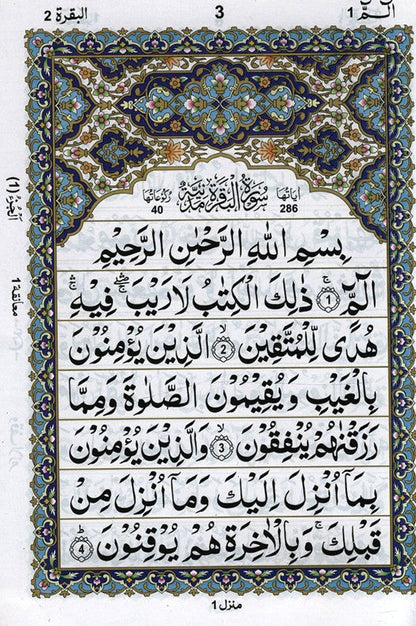 البقرة 2
3
الٓمّٓ 1
اٰيَاتُهَا 286
سُوْرَةُ الْبَقَرَةِ مَدَنِيَّةٌ
رُكُوْعَاتُهَا 40
بِسْمِ اللّٰهِ الرَّحْمٰنِ الرَّحِيْمِ
الٓمّٓ ۚ ﴿1﴾ ذٰلِكَ الْكِتٰبُ لَا رَيْبَ ۛۖ فِيْهِ ۛۚ
هُدًى لِّلْمُتَّقِيْنَ ۙ ﴿2﴾ الَّذِيْنَ يُؤْمِنُوْنَ
بِالْغَيْبِ وَيُقِيْمُوْنَ الصَّلٰوةَ وَمِمَّا
رَزَقْنٰهُمْ يُنْفِقُوْنَ ۙ ﴿3﴾ وَالَّذِيْنَ يُؤْمِنُوْنَ
بِمَآ اُنْزِلَ اِلَيْكَ وَمَآ اُنْزِلَ مِنْ
قَبْلِكَ ۚ وَبِالْاٰخِرَةِ هُمْ يُوْقِنُوْنَ ؕ ﴿4﴾
اَلْجُزْءُ (1)
معانقة 1
منزل 1